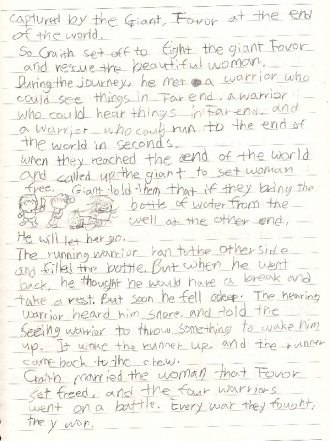 captured by the Giant, Favor at the end
of the world.
So Craith set off to fight the giant Favor
and rescue the beautiful woman.
During the journey, he met a warrior who
could see things in Far end, a warrior
who could hear things in Far end, and
a warrior who could run to the end of
the world in seconds.
When they reached the end of the world
and called up the giant to set woman
free, Giant told them that if they bring the
bottle of water from the
well at the other end,
He will let her go.
The running warrior ran to the other side
and filled the bottle. But when he went
back, he thought he would have a break and
take a rest. But soon he fell asleep. The hearing
warrior heard him snore, and told the
Seeing warrior to throw something to wake him
up. It woke the runner up, and the runner
came back to the crew.
Craith married the woman that Favor
set freed, and the four warriors
went on a battle. Every war they fought,
they won.